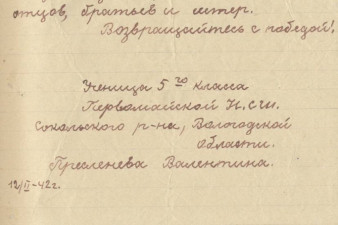 отцов, братьев и сестер.
Возвращайтесь с победой!
Ученица 5го класса
Первомайской Н.С.Ш.
Сокольского р-на, Вологодской
области.
Преснева Валентина.
12/II-42 г.